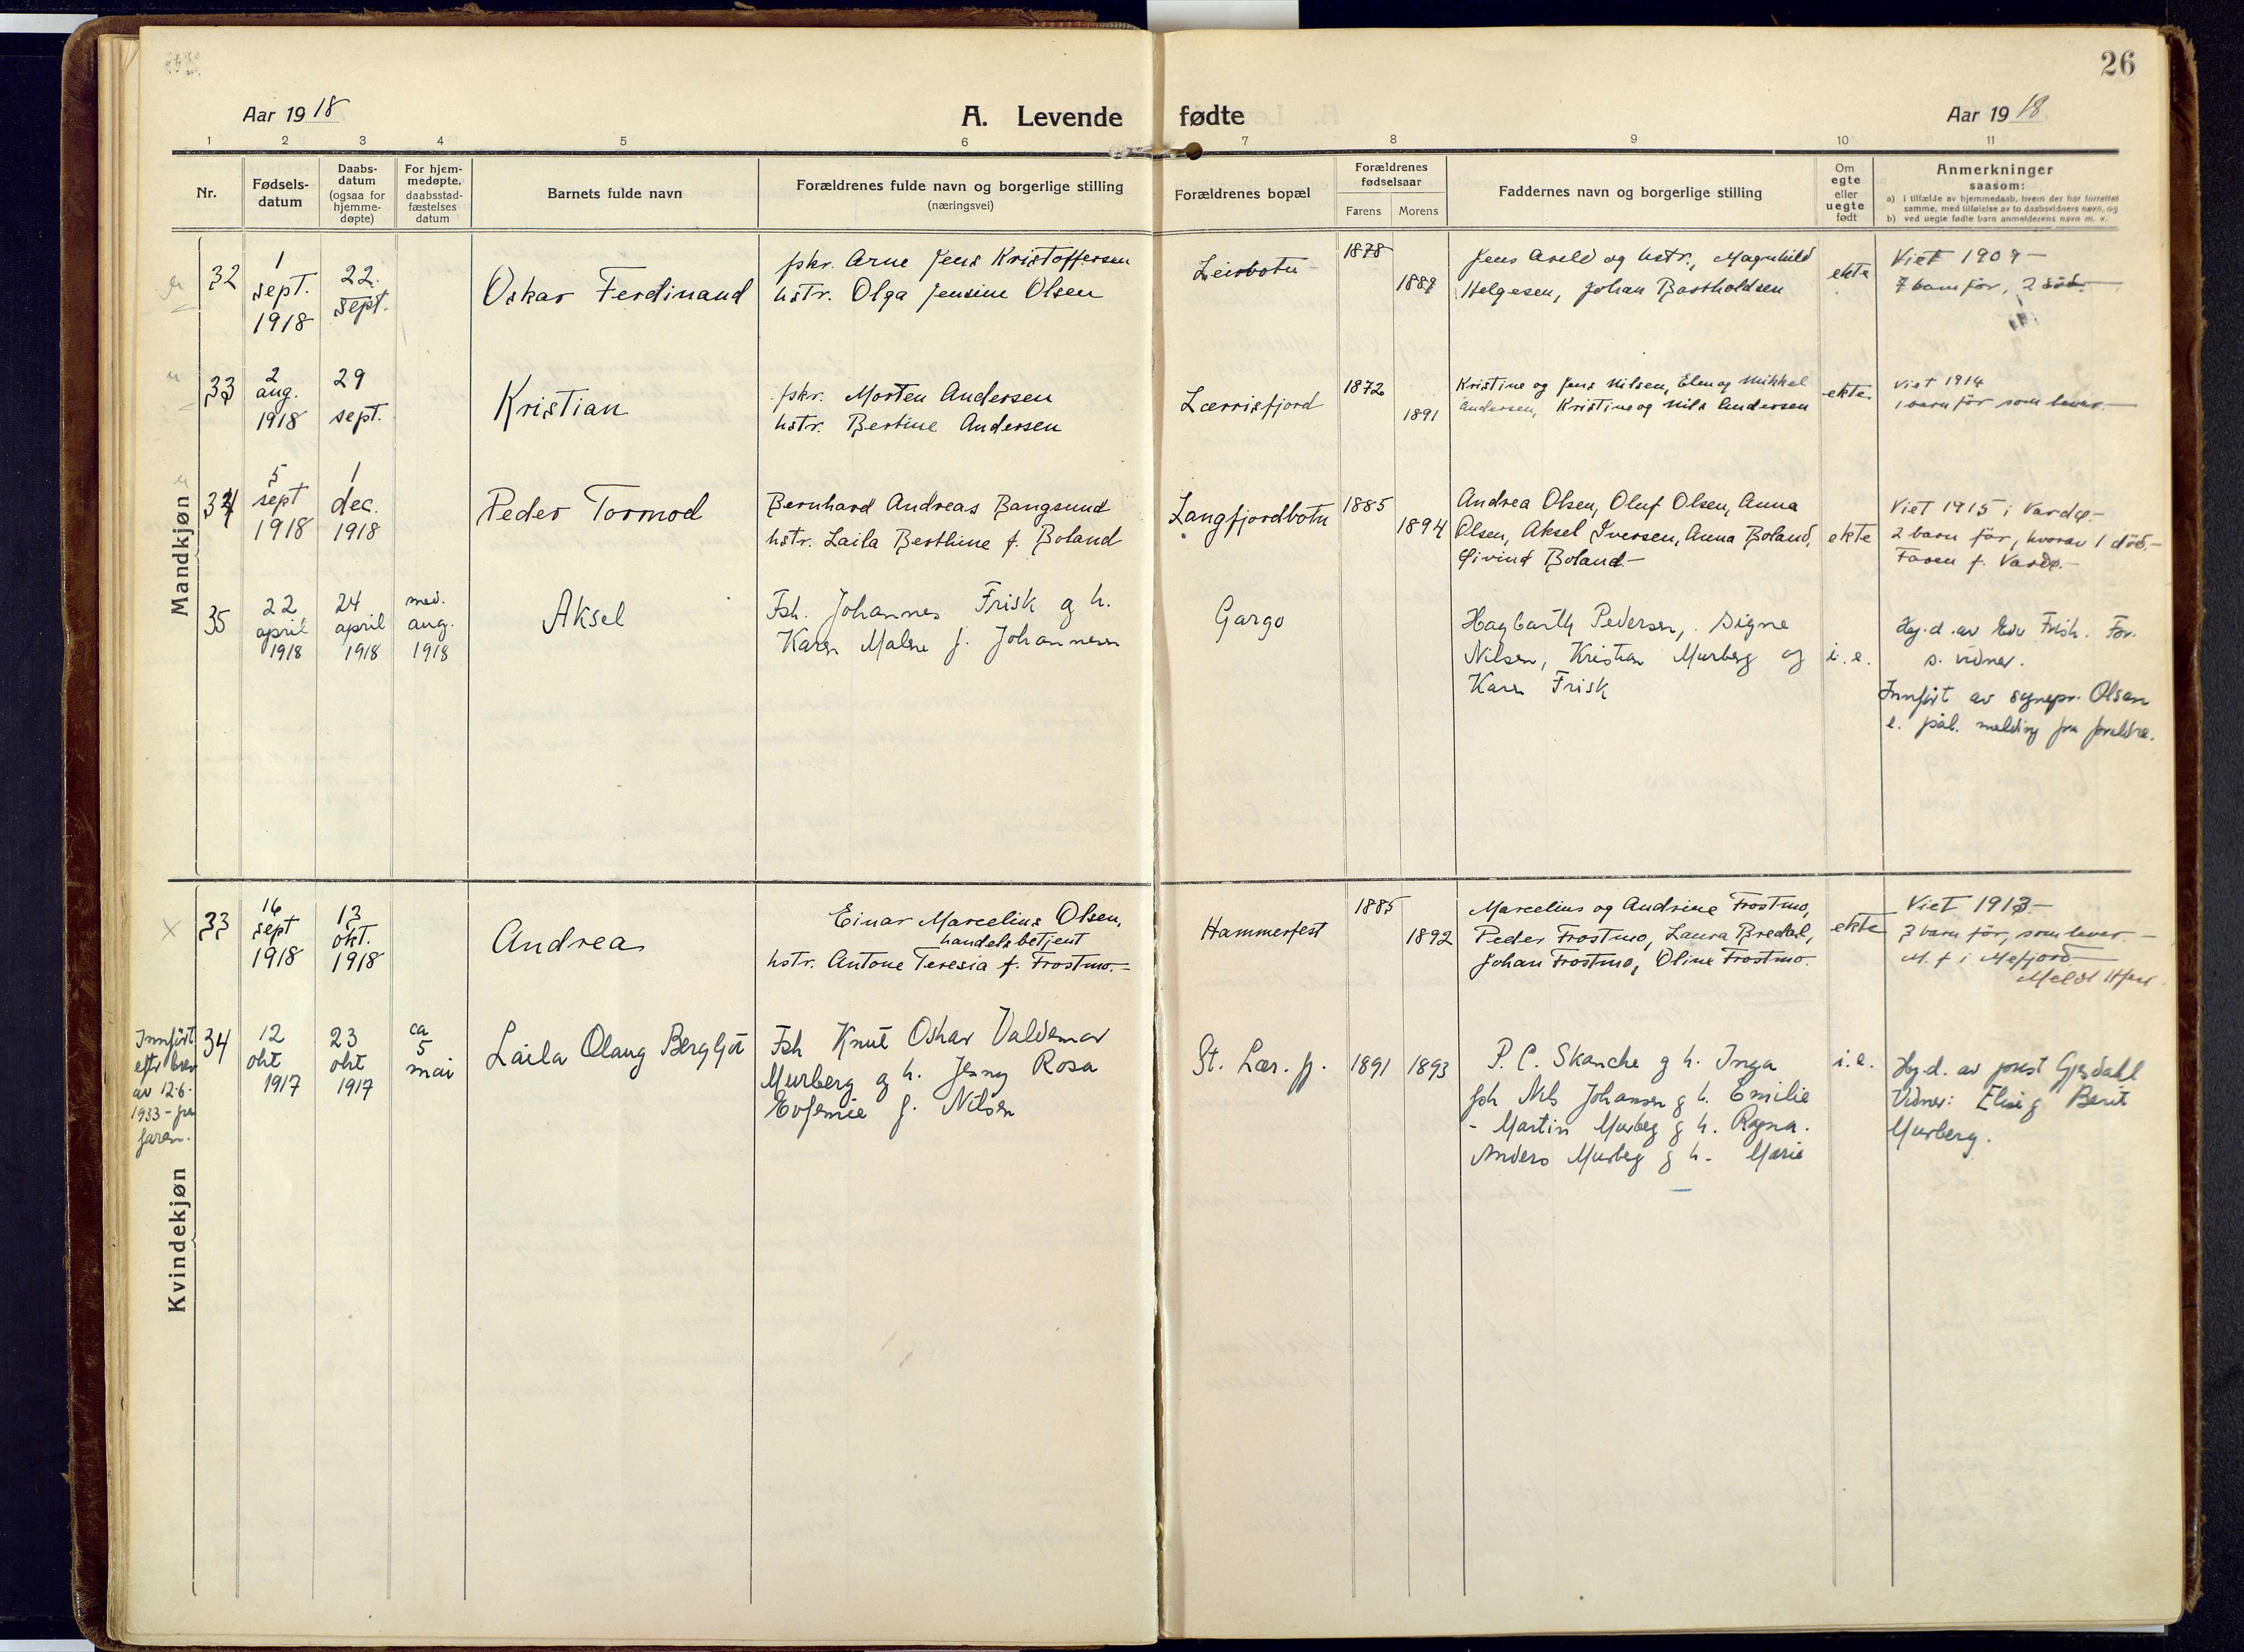 26
Aar 1918
A. Levende fødte
Aar 1918
1 2 3 4 5 6 7 8 9 10 11
Nr.
Fødsels-
datum
Daabs-
datum
(ogsaa for
hjemme-
døpte)
For hjem-
medøpte,
daabsstad-
fæstelses
datum
Barnets fulde navn
Forældrenes fulde navn og borgerlige stilling
(næringsvei)
Forældrenes bopæl
Forældrenes
fødselsaar
Farens Morens
Faddernes navn og borgerlige stilling
Om
egte
eller
uegte
født
Anmerkninger
saasom:
a) i tilfælde av hjemmedaab, hvem der har forrettet
samme, med tilføielse av to daabsvidners navn, og
b) ved uegte fødte barn anmelderens navn m. v.
Mandkjøn
32
1
sept.
1918
22.
sept.
Oskar Ferdinand
fskr. Arne Jens Kristoffersen
hstr. Olga Jensine Olsen
Leirbotn
1878
Jens Areld og hstr., Magnhild
Helgesen, Johan Bartholdsen
ekte
Viet 1909 -
7 barn før, 2 død. -
33
2
aug.
1918
29
sept.
Kristian
fskr. Morten Andersen
hstr. Bertine Andersen
Lerrisfjord
1872
1891
Kristine og Jens Nilsen, Elen og Mikkel
Andersen, Kristine og Nils Andersen
ekte
Viet 1914
1 barn før som lever. -
34
5
sept
1918
1
dec.
1918
Peder Tormod
Bernhard Andreas Bangsund
hstr. Laila Berthine f. Boland
Langfjordbotn
1885
1894
Andrea Olsen, Oluf Olsen, Anna
Olsen, Aksel Iversen, Anna Boland,
Øivind Boland. -
ekte
Viet 1915 i Vardø. -
2 barn før, hvorav 1 død. -
Faren f. Vardø. -
35
22
april
1918
24
april
1918
med.
aug.
1918
Aksel
Fsk. Johannes Frisk g h.
Karen Malene f. Johannesen
Gargo
Hagbarth Pedersen, Signe
Nilsen, Kristian Murberg og
Karen Frisk
i. e.
Hj.d. av Frisk. For.
s. vidner.
Innført av sognepr. Olsen
e. pål. melding fra foreldre.
Kvindekjøn
33
16
sept
1918
13
okt.
1918
Andrea
Einar Marcelius Olsen,
handelsbetjent
hstr. Antone Teresia f. Frostmo. -
Hammerfest
1885
1892
Marcelius og Andrine Frostmo,
Peder Frostmo, Laura Bredal,
Johan Frostmo, Oline Frostmo.
ekte
Viet 1913. -
3 barn før, som lever. -
M. f. i Mefjord
Meldt Hfest.
Innført
efter brev
av 12.6.
1933 - fra
faren.
34
12
okt
1917
23
okt
1917
ca
5
mai
Laila Olaug Bergljot
Fsk Knut Oskar Valdemar
Murberg g h. Jenny Rosa
Evfemie f. Nilsen
St. Ler. fj.
1891
1893
P. C. Skanche g h. Inga
fsk Nils Johansen g h. Emilie
- Martin Murberg g h. Ragna.
Anders Murberg g h. Marie
i. e.
Hj.d. av prest Gjesdahl
Vidner: Elise g Berit
Murberg.